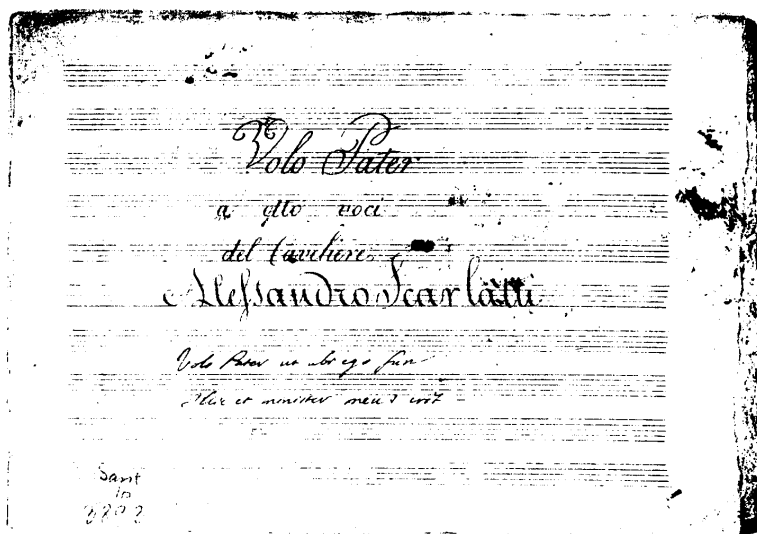 Volo Pater
a otto voci
del Cavaliere
Alessandro Scarlatti
Volo Pater ut ubi ego sum
illic et minister meus erit
Sant